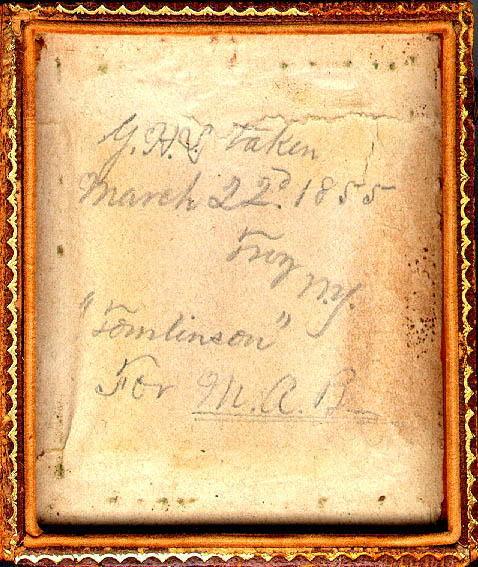 G.H.S taken
March 22d. 1855
Troy
N.Y.
"Tomlinson"
For M.A.B